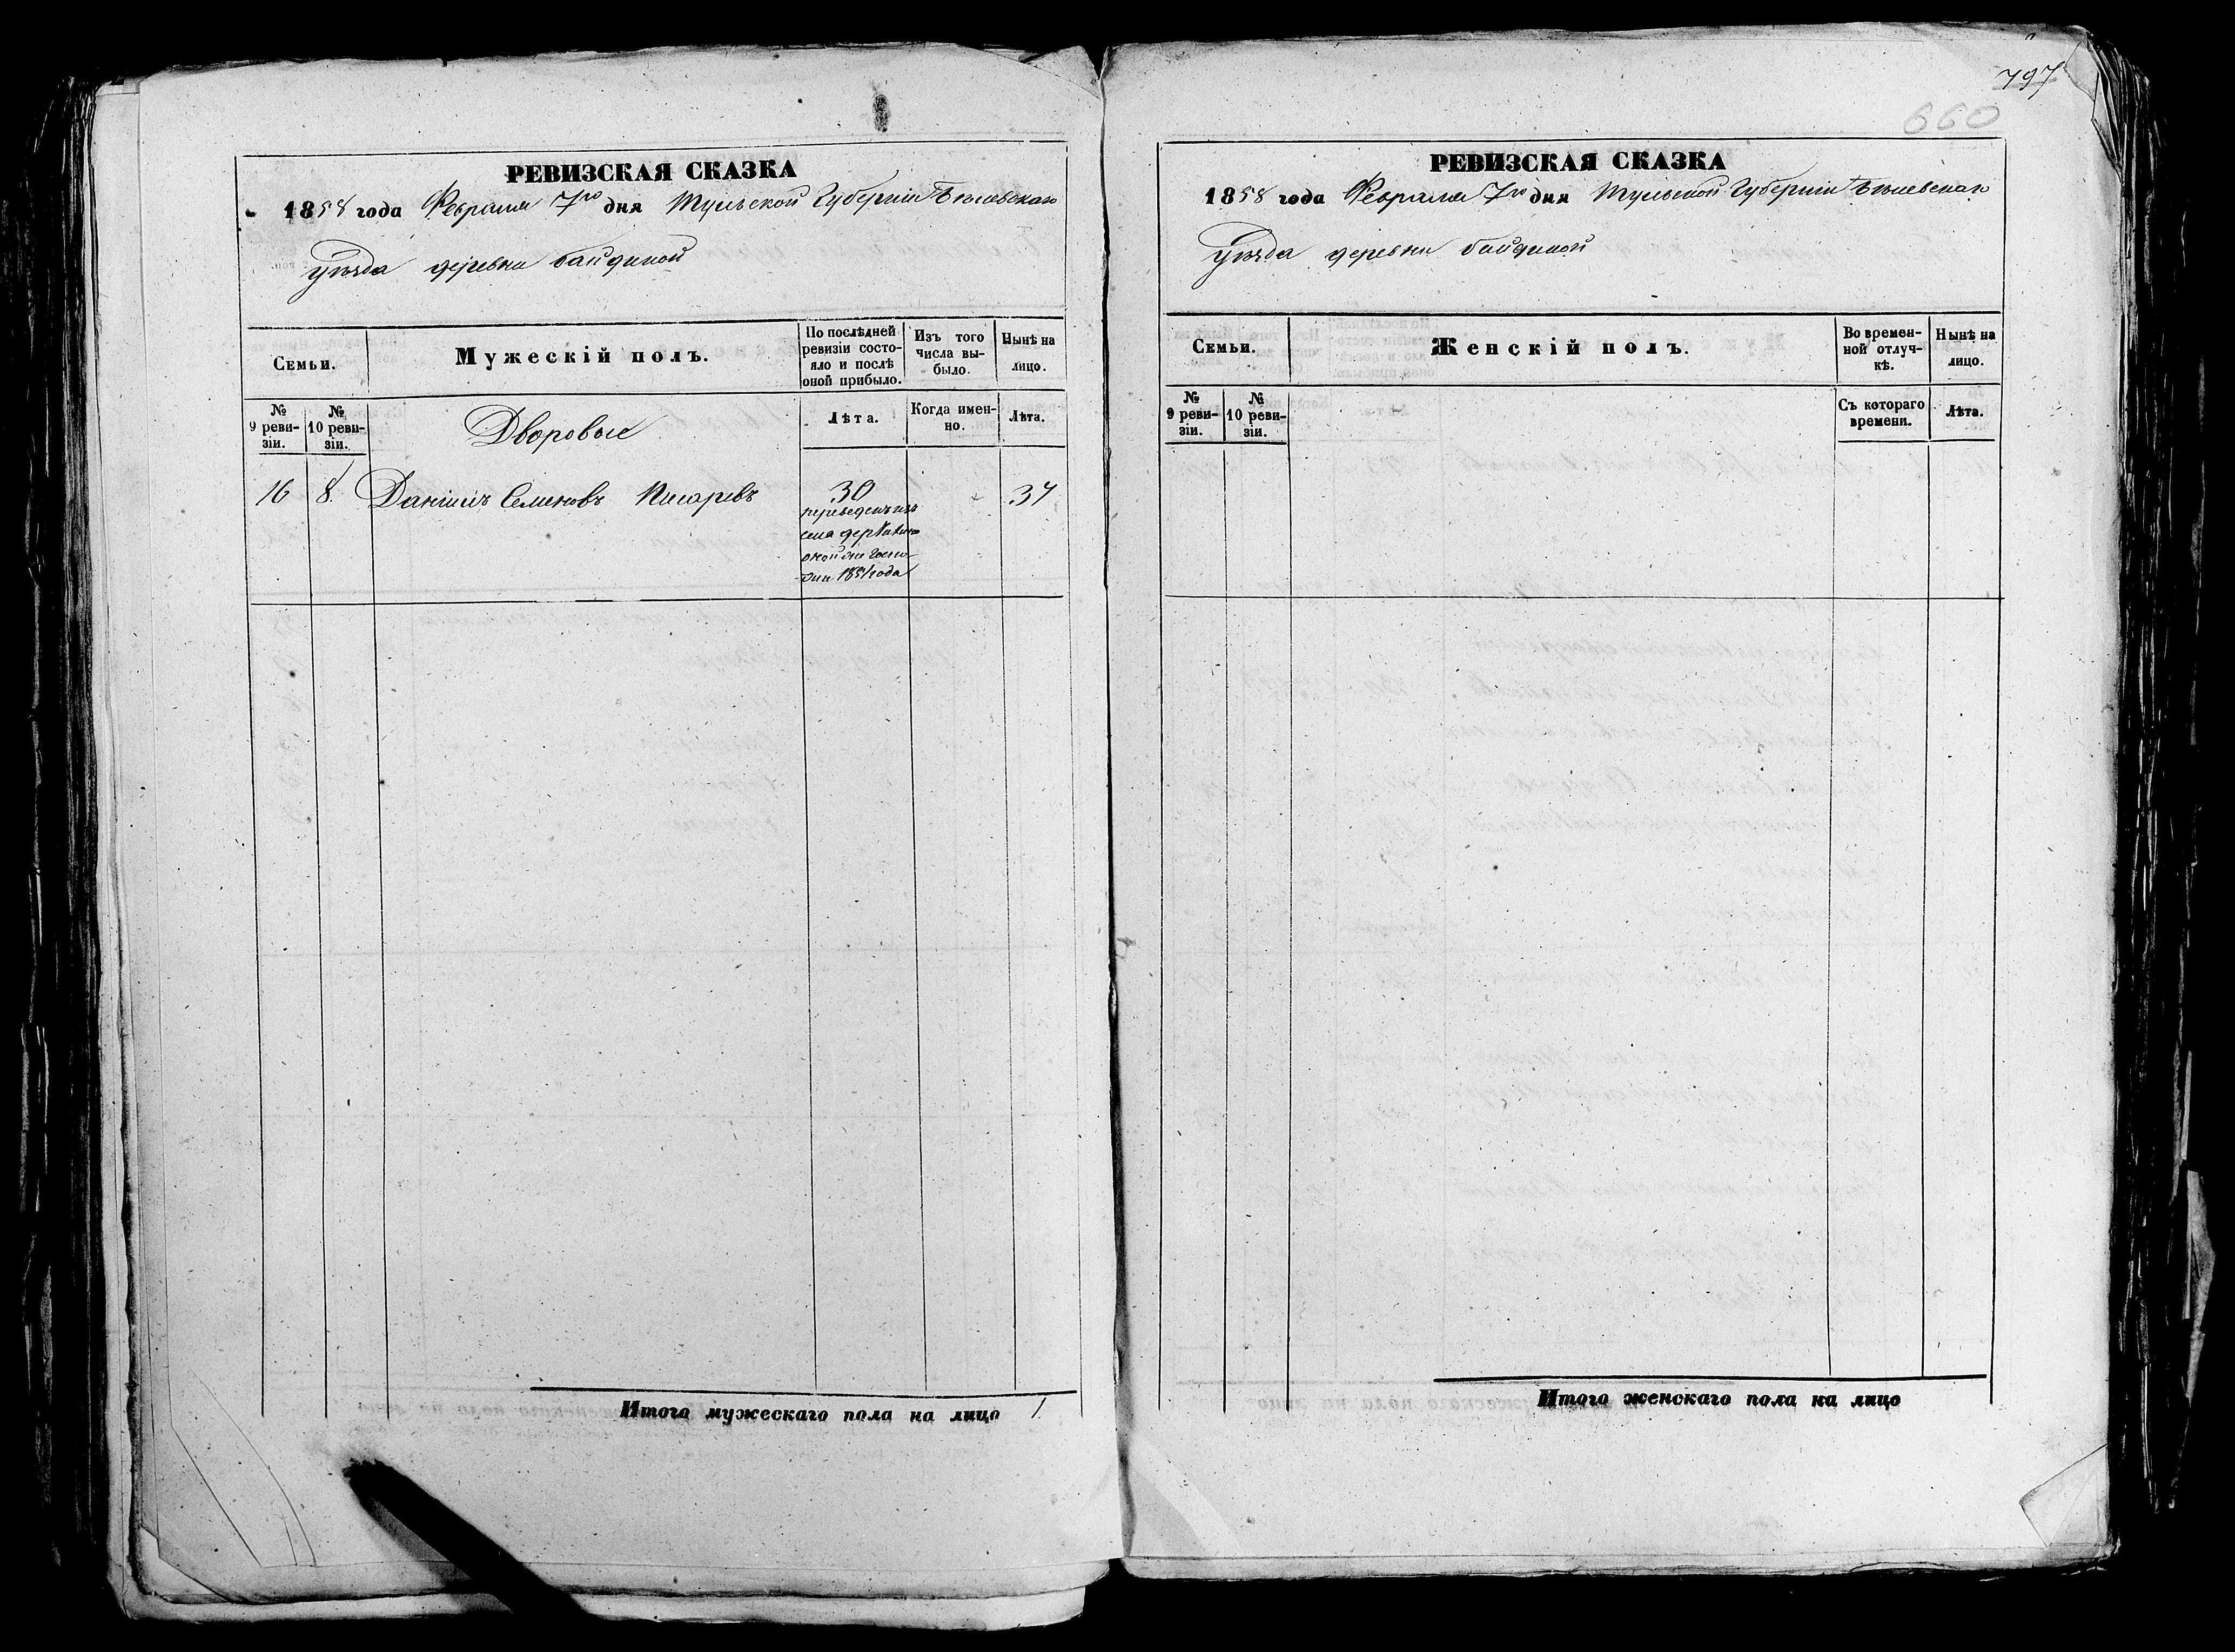 РЕВИЗСКАЯ СКАЗКА
1858 года Февраля 7го дня Тульской Губерніи Бѣлевскаго
уѣзда деревни байдиной
Семьи.
Мужескій полъ.
По послѣдней ревизіи состояло и послѣ оной прибыло.
Изъ того числа выбыло.
Нынѣ на лицо.
№ 9 ревизіи.
№ 10 ревизіи.
Дворовые
Лѣта.
Когда именно.
Лѣта.
16 8. Даніилъ Семеновъ Писаревъ 30 37
переведенъ изъ
села
1851 года
Итого мужескаго пола на лицо 1
797
660
РЕВИЗСКАЯ СКАЗКА
1858 года Февраля 7го дня Тульской Губерніи Бѣлевскаго
уѣзда деревни байдиной
Семьи.
Женскій полъ.
Во временной отлучкѣ.
Нынѣ на лицо.
№ 9 ревизіи.
№ 10 ревизіи.
Съ котораго времени.
Лѣта.
Итого женскаго пола на лицо